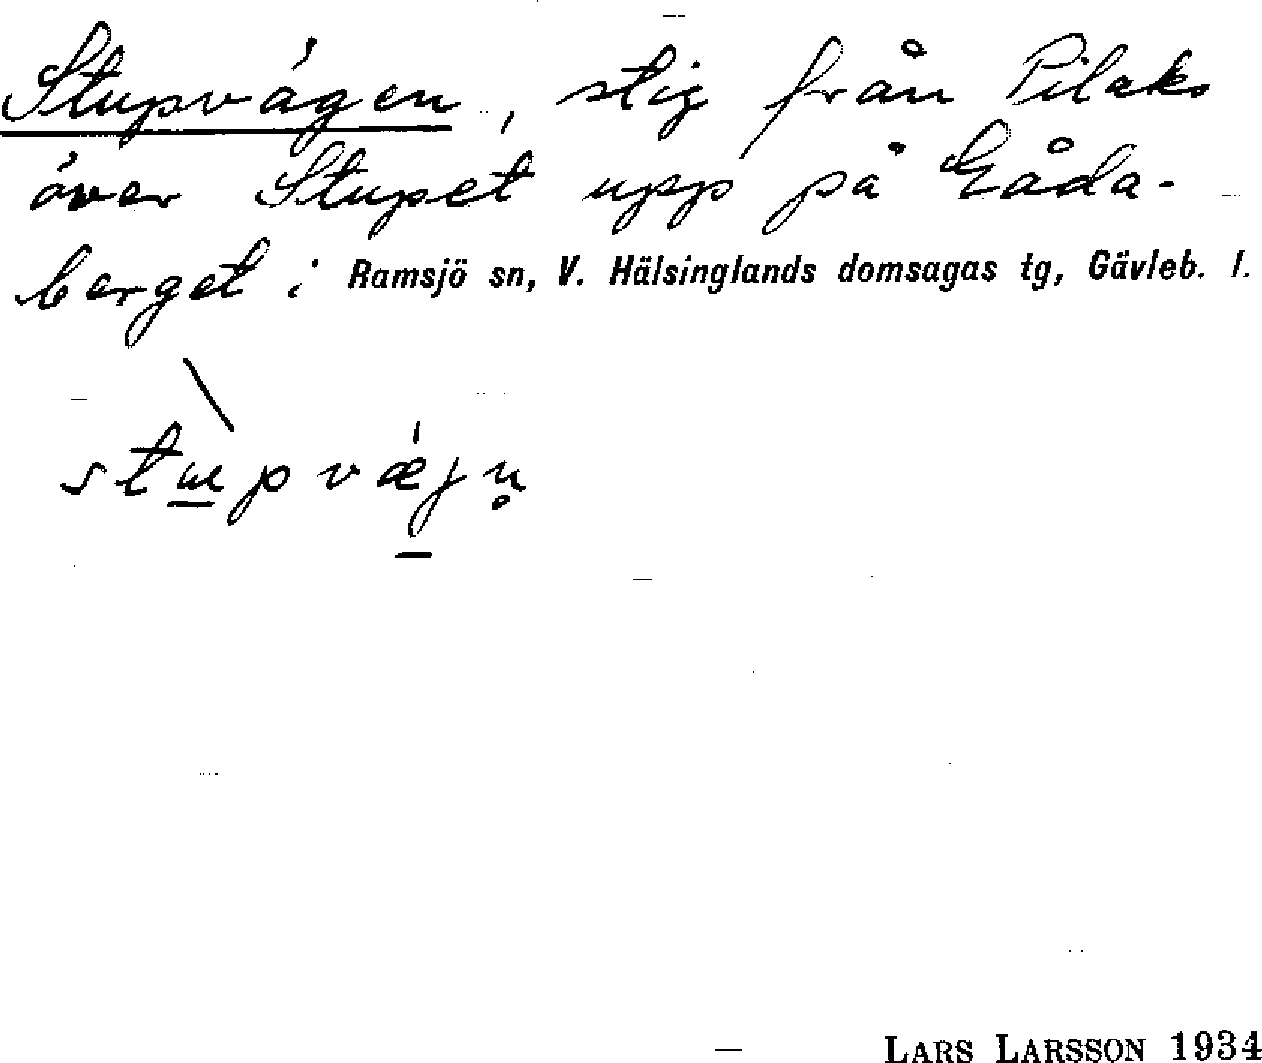 Stupvägen, stig från Pilaks
över Stupet upp på Gåda-
berget i Ramsjö sn, V. Hälsinglands domsagas tg, Gävleb. l.
LARS LARSSON 1934